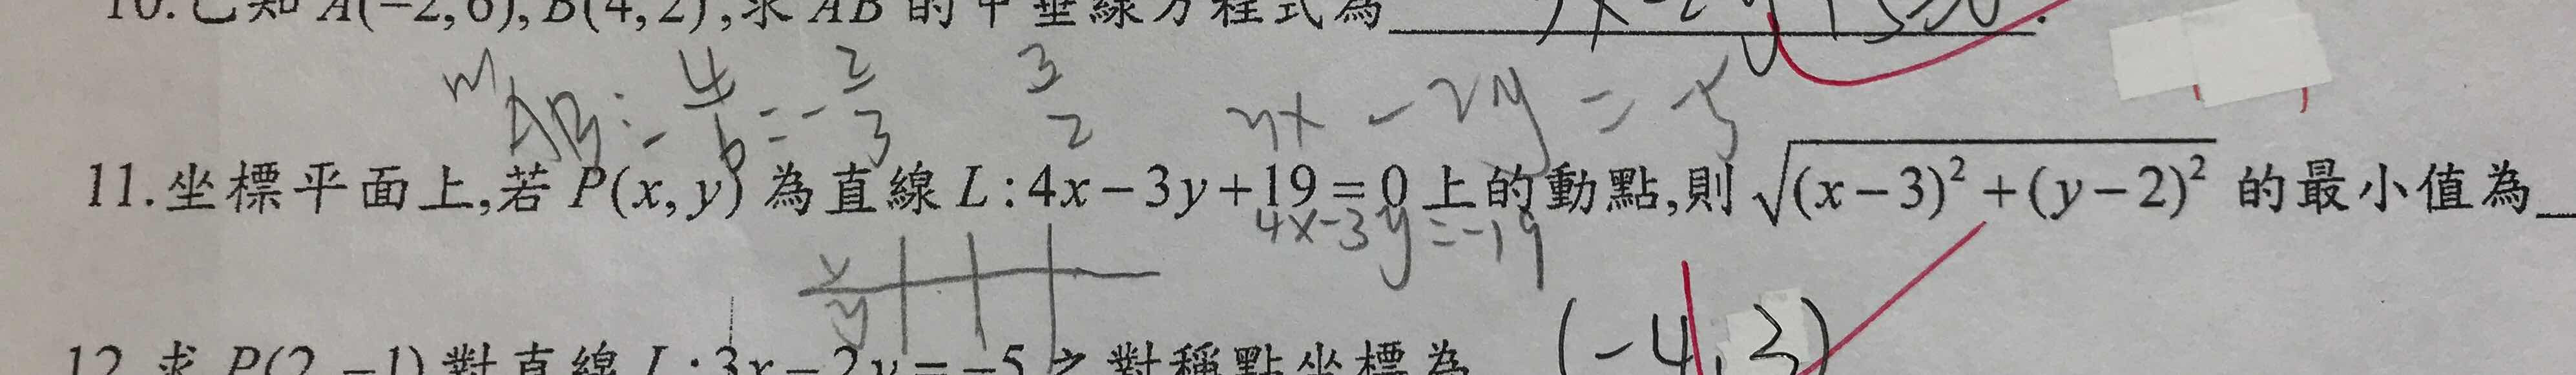 10.已知 A(−2,6),B(4,2),求 AB 的中垂線方程式為
m AB : −4/6 = −2/3 3/2 3x − 2y = −5
11.坐標平面上,若 P(x, y) 為直線 L : 4x − 3y + 19 = 0 上的動點,則 √((x − 3)² + (y − 2)²) 的最小值為
4x−3y=−19
x
y
12.求 P(2,−1) 對直線 L : 3x − 2y = −5 之對稱點坐標為 (−4, 3)